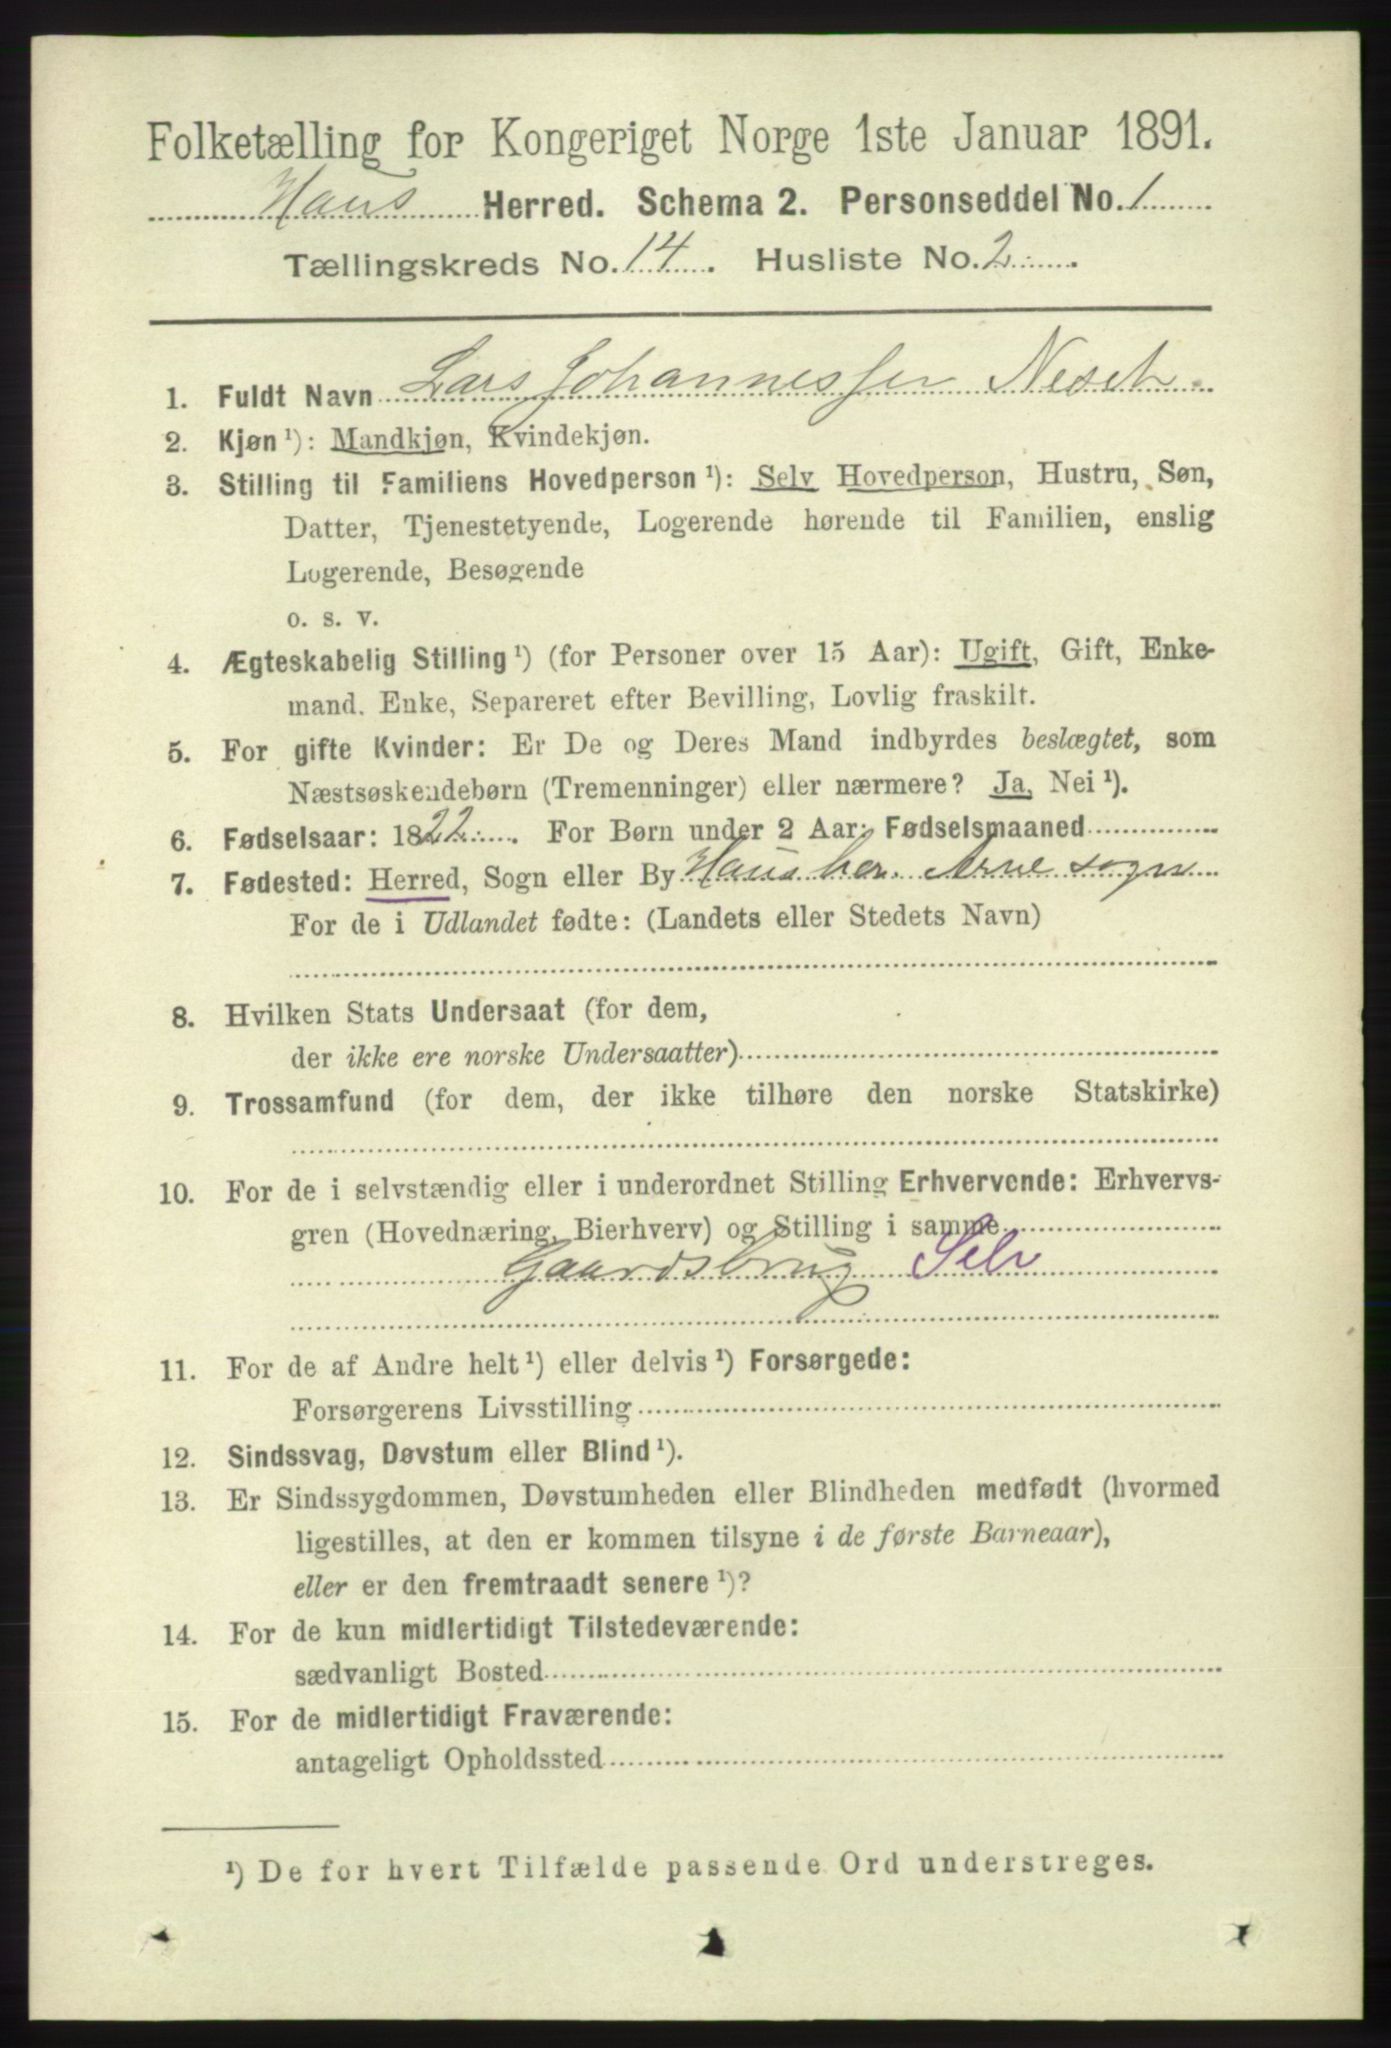 Folketælling for Kongeriget Norge 1ste Januar 1891.
Haus Herred. Schema 2. Personseddel No. 1
Tællingskreds No. 14. Husliste No. 2.
1. Fuldt Navn Lars Johannessen Neset.
2. Kjøn ¹): Mandkjøn, Kvindekjøn.
3. Stilling til Familiens Hovedperson ¹): Selv Hovedperson, Hustru, Søn,
Datter, Tjenestetyende, Logerende hørende til Familien, enslig
Logerende, Besøgende
o. s. v.
4. Ægteskabelig Stilling ¹) (for Personer over 15 Aar): Ugift, Gift, Enke-
mand, Enke, Separeret efter Bevilling, Lovlig fraskilt.
5. For gifte Kvinder: Er De og Deres Mand indbyrdes beslægtet, som
Næstsøskendebørn (Tremenninger) eller nærmere? Ja, Nei ¹).
6. Fødselsaar: 1822. For Børn under 2 Aar: Fødselsmaaned
7. Fødested: Herred, Sogn eller By Haus her. Arne sogn
For de i Udlandet fødte: (Landets eller Stedets Navn)
8. Hvilken Stats Undersaat (for dem,
der ikke ere norske Undersaatter)
9. Trossamfund (for dem, der ikke tilhøre den norske Statskirke)
10. For de i selvstændig eller i underordnet Stilling Erhvervende: Erhvervs-
gren (Hovednæring, Bierhverv) og Stilling i samme
Gaardsbrug Selv
11. For de af Andre helt ¹) eller delvis ¹) Forsørgede:
Forsørgerens Livsstilling
12. Sindssvag, Døvstum eller Blind ¹).
13. Er Sindssygdommen, Døvstumheden eller Blindheden medfødt (hvormed
ligestilles, at den er kommen tilsyne i de første Barneaar),
eller er den fremtraadt senere ¹)?
14. For de kun midlertidigt Tilstedeværende:
sædvanligt Bosted
15. For de midlertidigt Fraværende:
antageligt Opholdssted
¹) De for hvert Tilfælde passende Ord understreges.